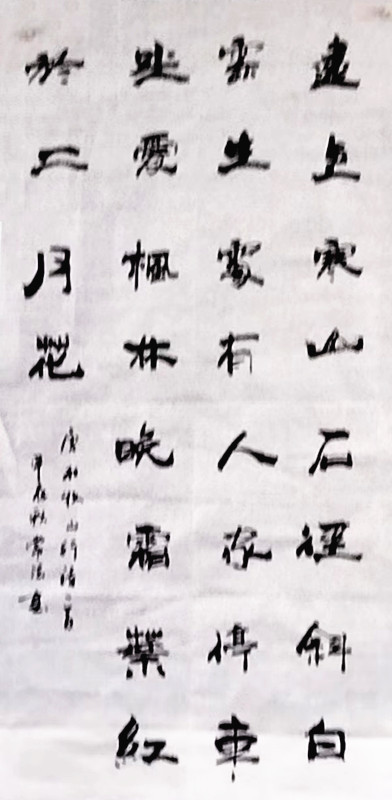 遠上寒山石徑斜白
雲生處有人家停車
坐愛楓林晚霜葉紅
於二月花
唐杜牧山行詩一首
秋